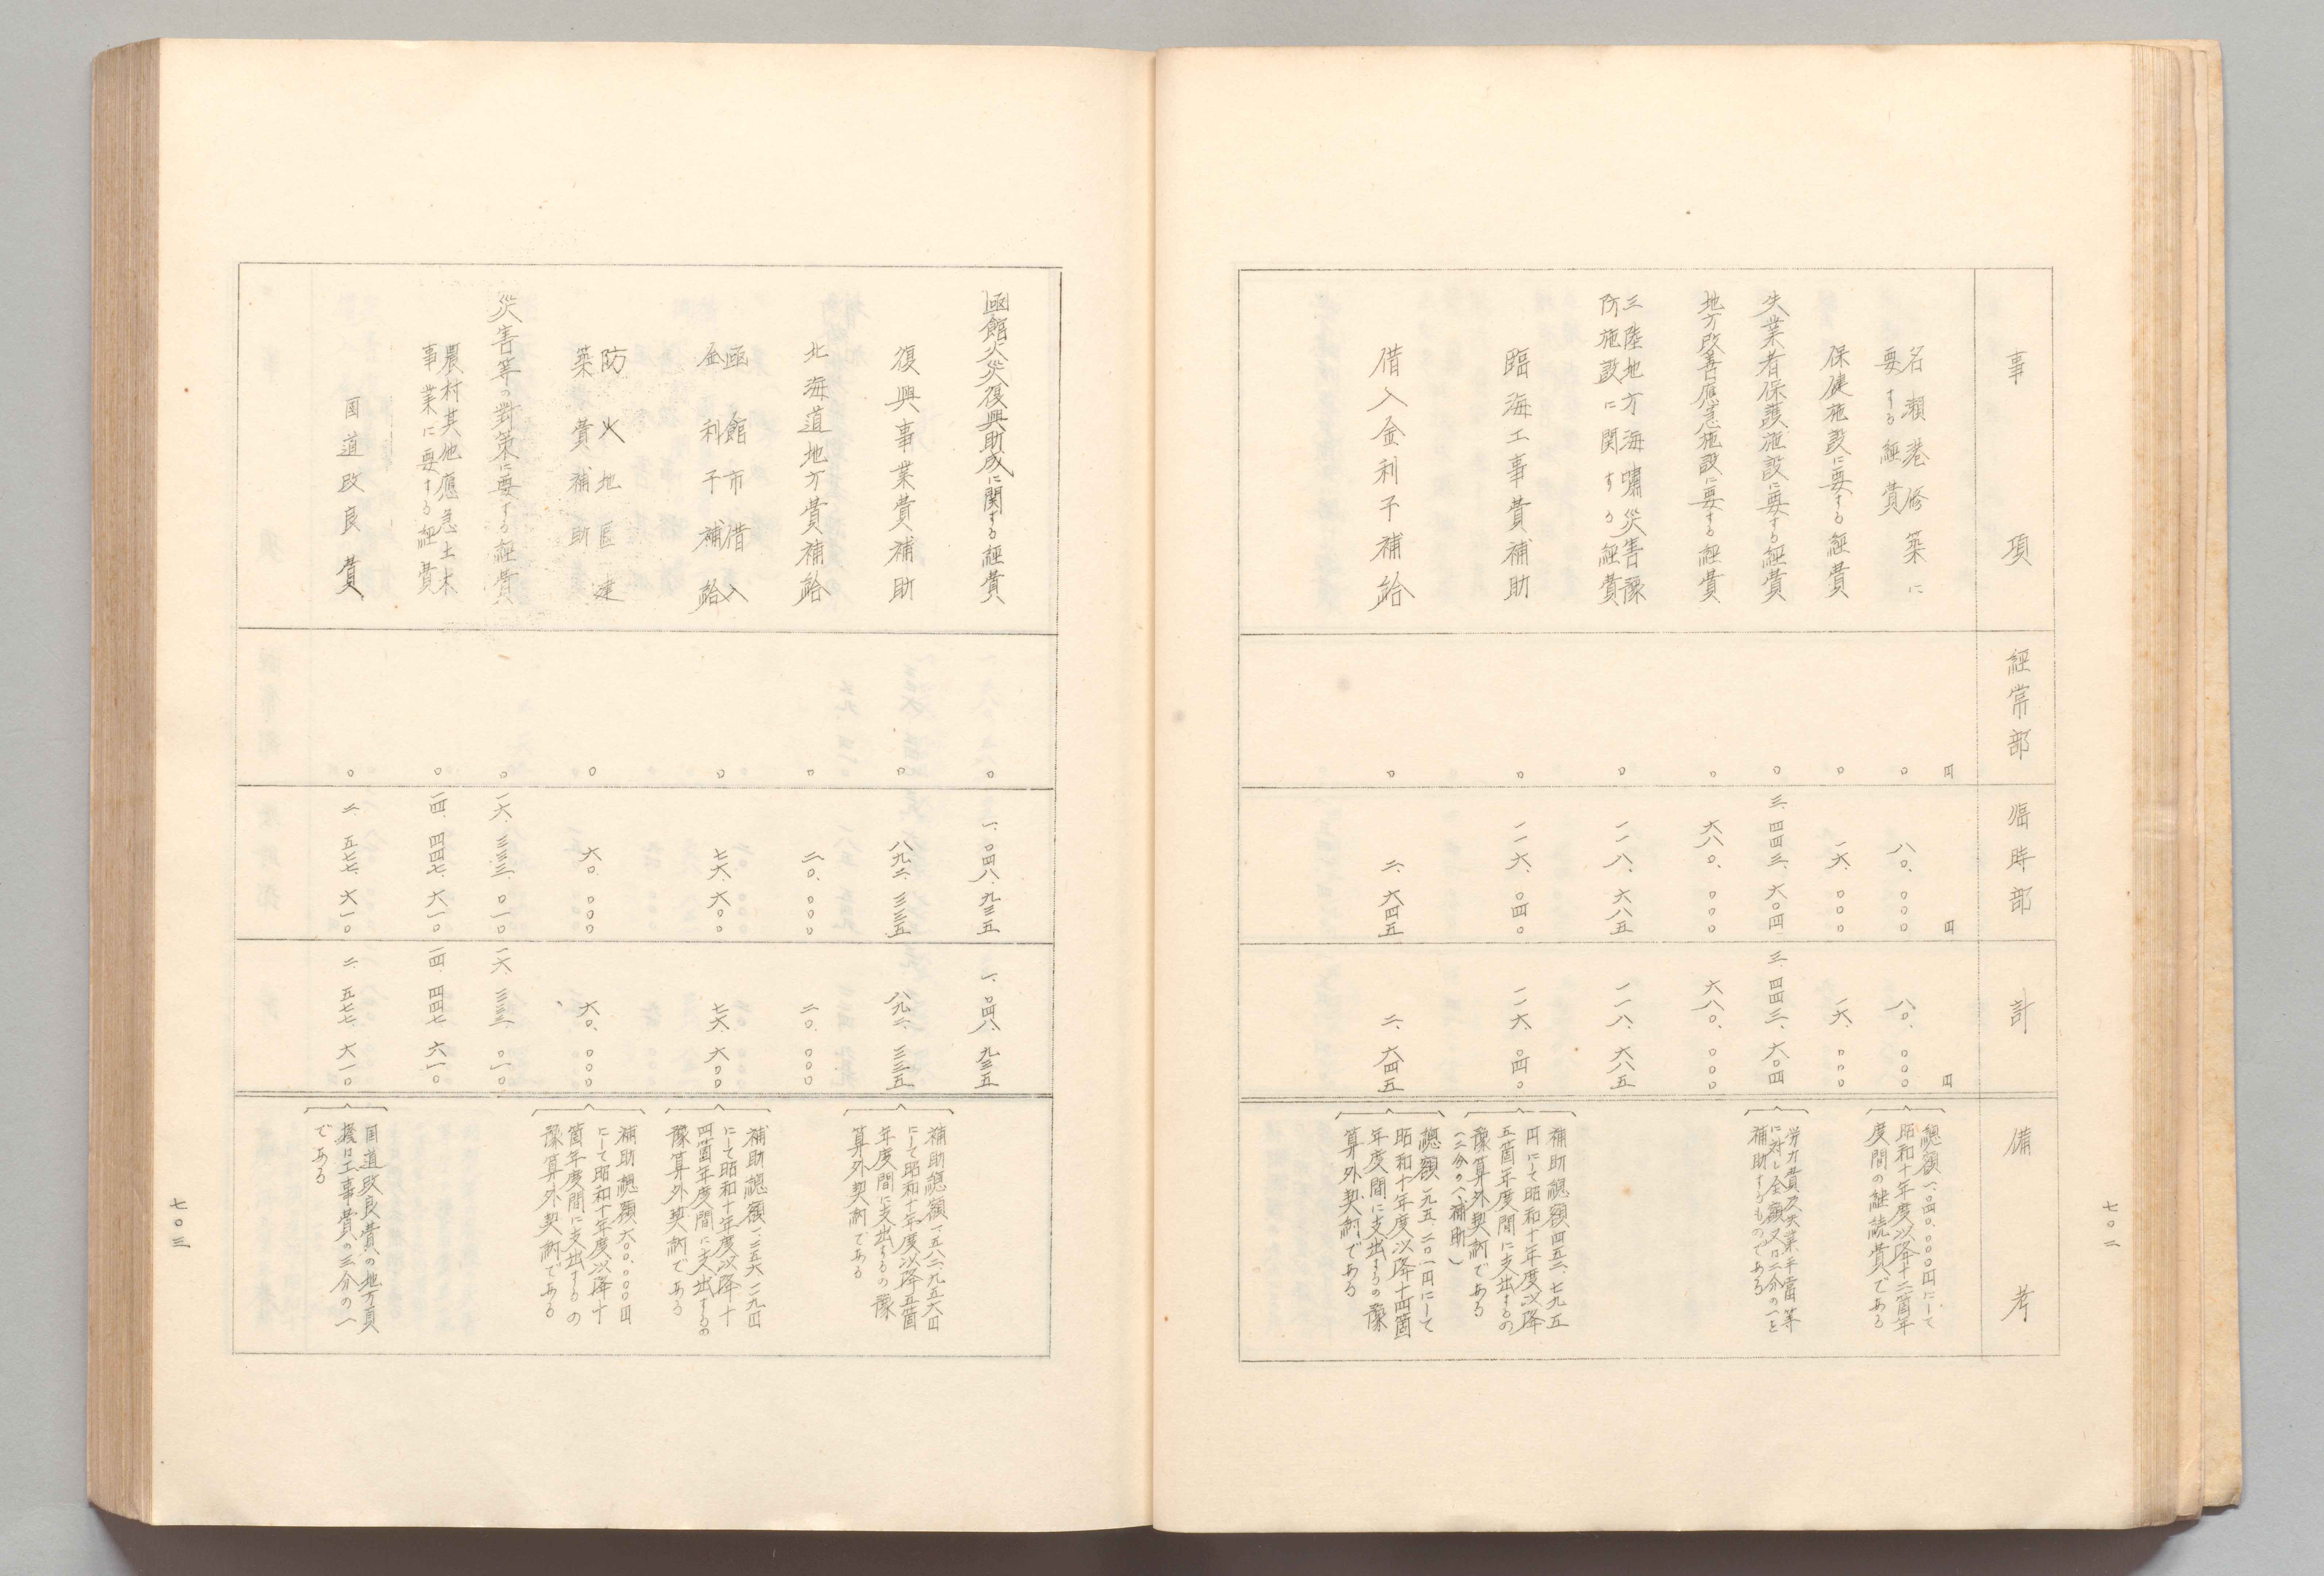 事項
経常部
臨時部
計
備考
円
円
円
名瀬港修築に
要する経費
〇
八〇、〇〇〇
八〇、〇〇〇
総額一、〇四〇、〇〇〇円にして
昭和十年度以降十二箇年
度間の継続費である
保健施設に要する経費
〇
一六、〇〇〇
一六、〇〇〇
失業者保護施設に要する経費
〇
三、四四三、六〇四
三、四四三、六〇四
労力費及失業手当等
に対し全額又は二分の一を
補助するものである
地方改善應急施設に要する経費
〇
六八〇、〇〇〇
六八〇、〇〇〇
三陸地方海嘯災害豫
防施設に関する経費
〇
一一八、六八五
一一八、六八五
臨海工事費補助
〇
一一六、〇四〇
一一六、〇四〇
補助総額四五三、七九五
円にして昭和十年度以降
五箇年度間に支出するの
豫算外契約である
（二分の一補助）
借入金利子補給
〇
二、六四五
二、六四五
総額一九五、二〇一円にして
昭和十年度以降十四箇
年度間に支出するの豫
算外契約である
七〇二
函館火災復興助成に関する経費
〇
一、〇四八、九三五
一、〇四八、九三五
復興事業費補助
〇
八九二、三三五
八九二、三三五
補助総額一、五八二、九五六円
にして昭和十年度以降五箇
年度間に支出するの豫
算外契約である
北海道地方費補給
〇
二〇、〇〇〇
二〇、〇〇〇
函館市借入
金利子補給
〇
七六、六〇〇
七六、六〇〇
補助総額一、三五六、一九九円
にして昭和十年度以降十
四箇年度間に支出するの
豫算外契約である
防火地区建
築費補助
〇
六〇、〇〇〇
六〇、〇〇〇
補助総額六〇〇、〇〇〇円
にして昭和十年度以降十
箇年度間に支出するの
豫算外契約である
災害等の對策に要する経費
〇
一六、三三三、〇一〇
一六、三三三、〇一〇
農村其他應急土木
事業に要する経費
〇
一四、四四七、六一〇
一四、四四七、六一〇
国道改良費
〇
二、五七七、六一〇
二、五七七、六一〇
国道改良費の地方負
擔は工事費の三分の一
である
七〇三